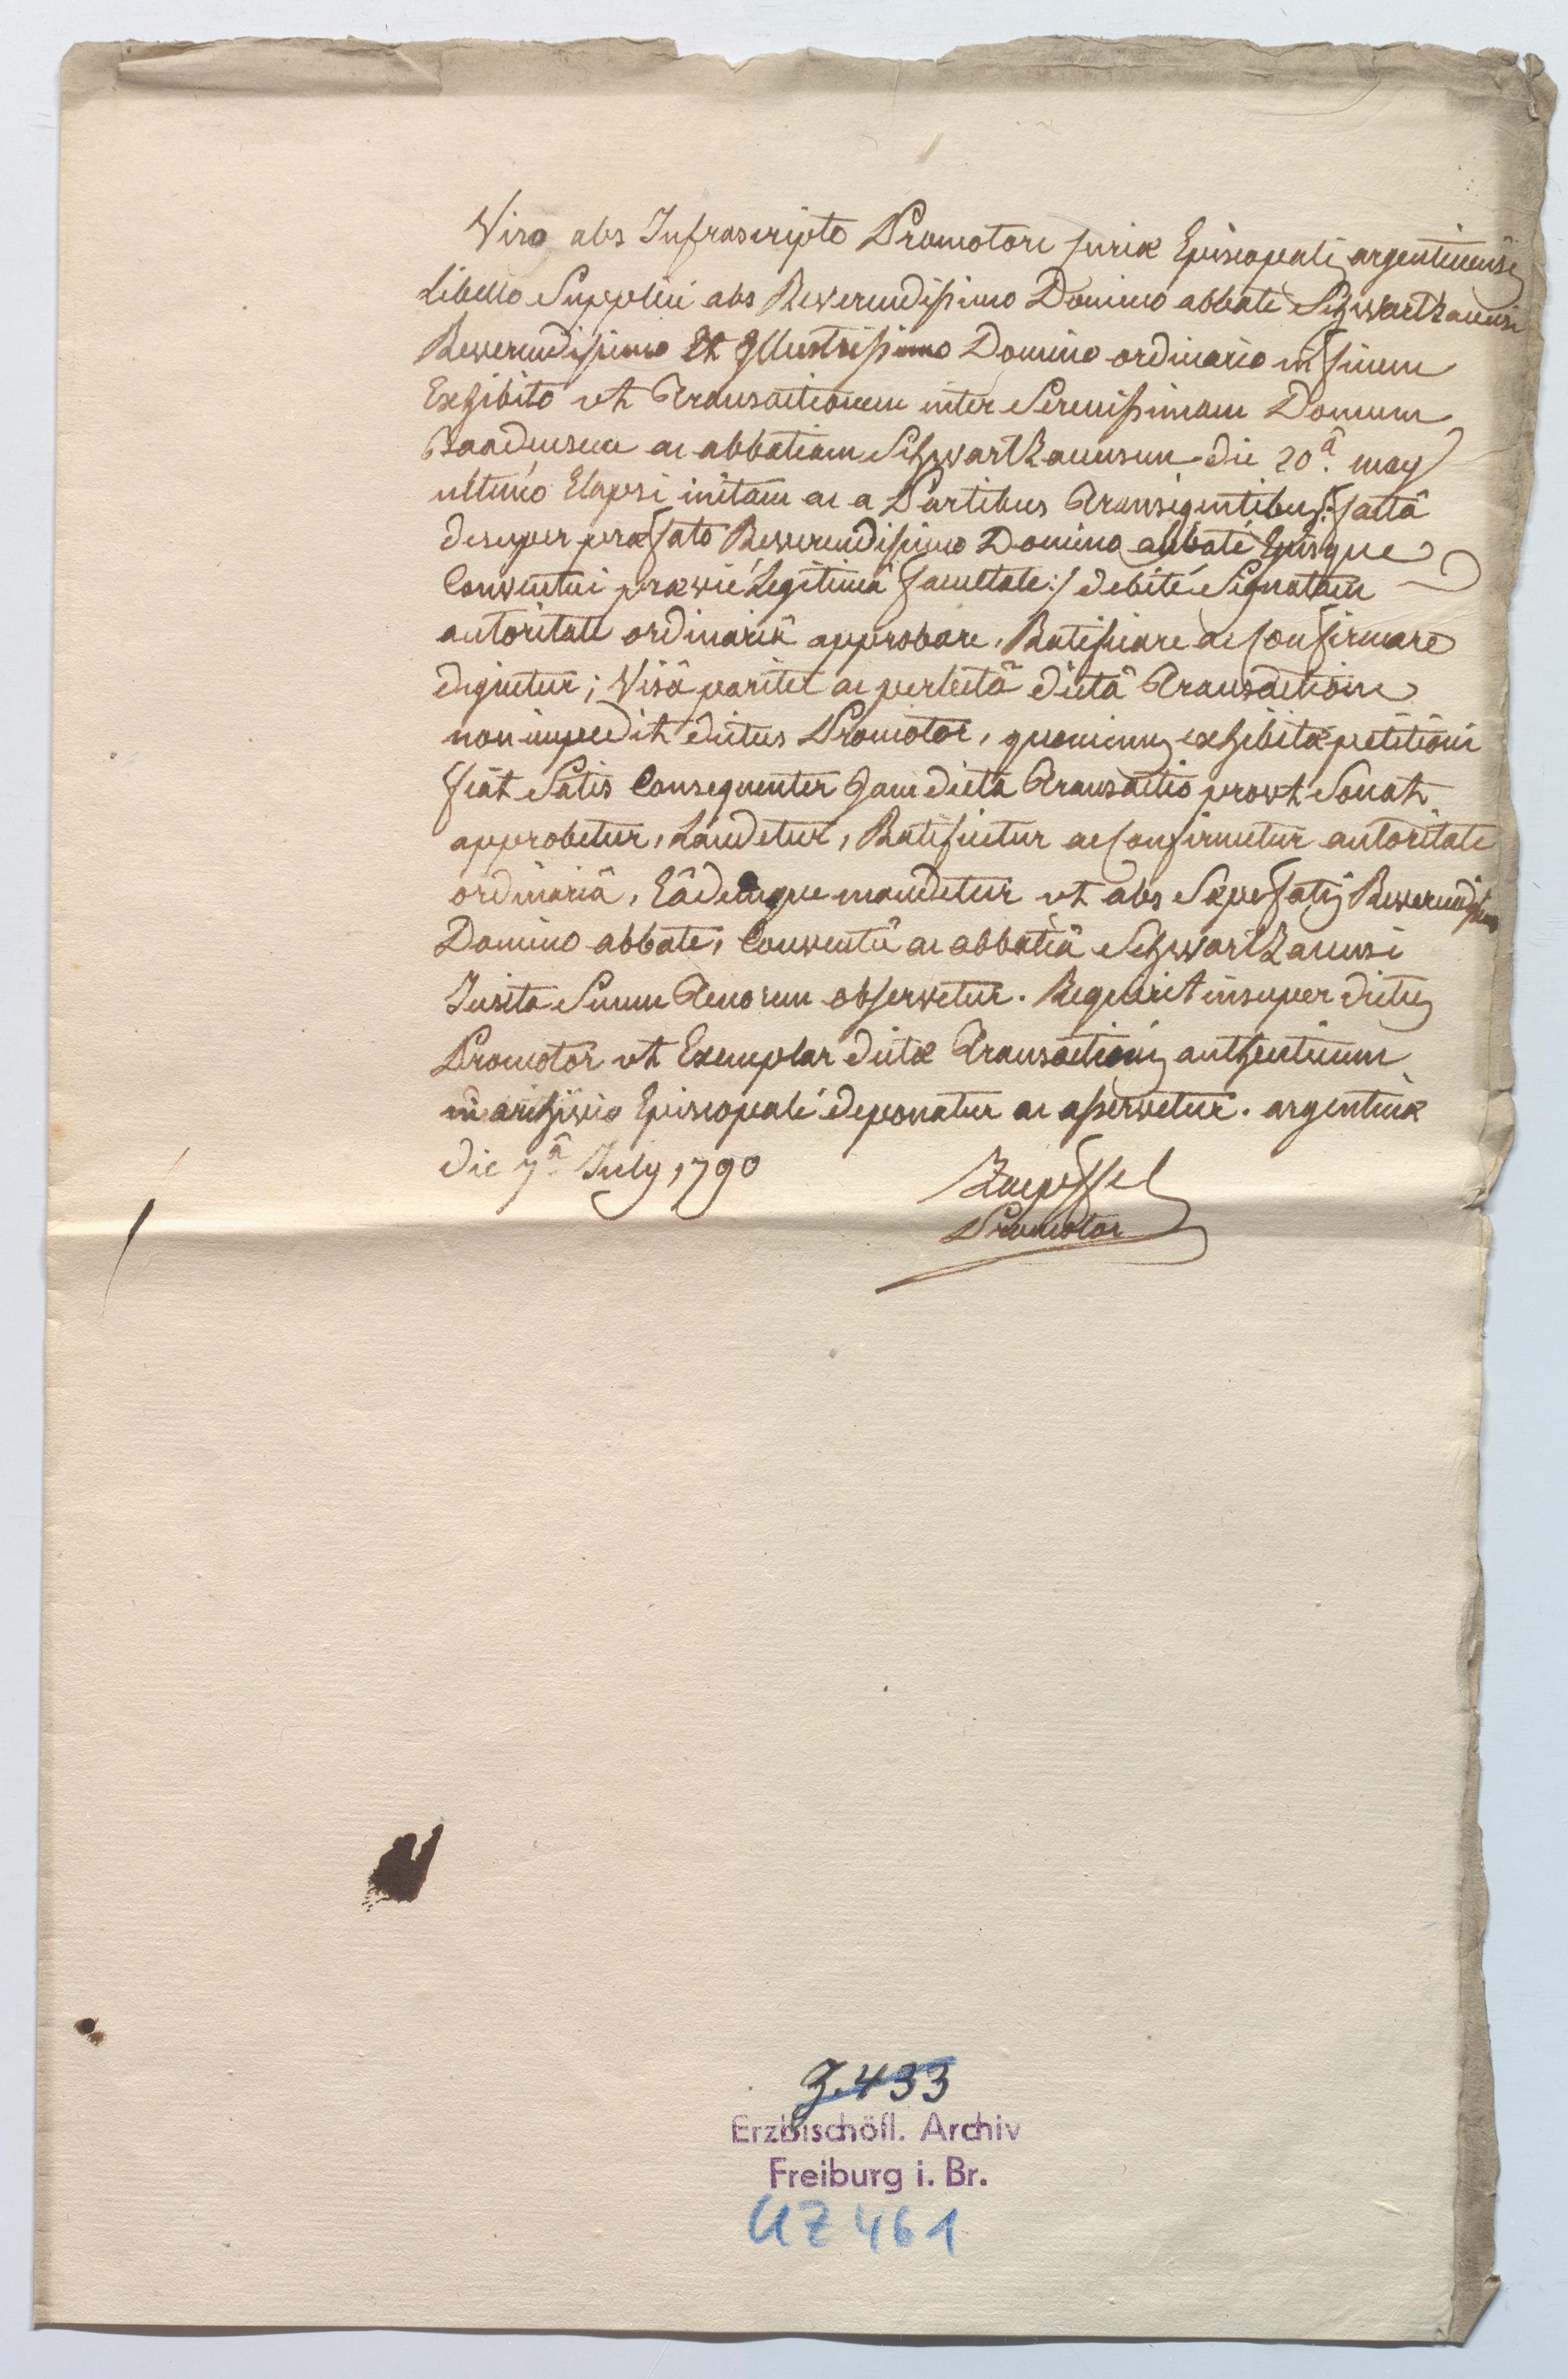 Viso abs Infrascripto Promotore Curiæ Episcopalis argentinensis
Libello Supplici abs Reverendissimo Domino abbate Schwartzacensi
Reverendissimo Et Illustrissimo Domino ordinario in finem
Exhibito ut Transactionem inter Serenissimam Domum
Baadensem ac abbatiam Schwartzacensem die 20â may
ultimo Elapsi initam ac a Partibus Transigentibus /: factâ
desuper præfato Reverendissimo Domino abbate Ejusque
Conventui præviè Legitimâ facultate :/ debitè Signatam
autoritate ordinariâ approbare, Ratificare ac Confirmare
dignetur; Visâ pariter ac perlectâ dictâ Transactione
non impedit dictus Promotor, quominus exhibitæ petitioni
fiat Satis Consequenter Jam dicta Transactio prout Sonat
approbetur, Laudetur, Ratificetur ac Confirmetur autoritate
ordinariâ, Eâdemque mandetur ut abs Sæpe fatis Reverendissimo
Domino abbate, Conventû ac abbatiâ Schwartzacensi
Juxta Suum Tenorem observetur. Requirit insuper dictus
Promotor ut Exemplar dictæ Transactionis authenticum
in archivio Episcopali deponatur ac asservetur. argentinæ
die 7â July 1790
Zaepffel
Promotor
J. 433
Erzbischöfl. Archiv
Freiburg i. Br.
UZ 461